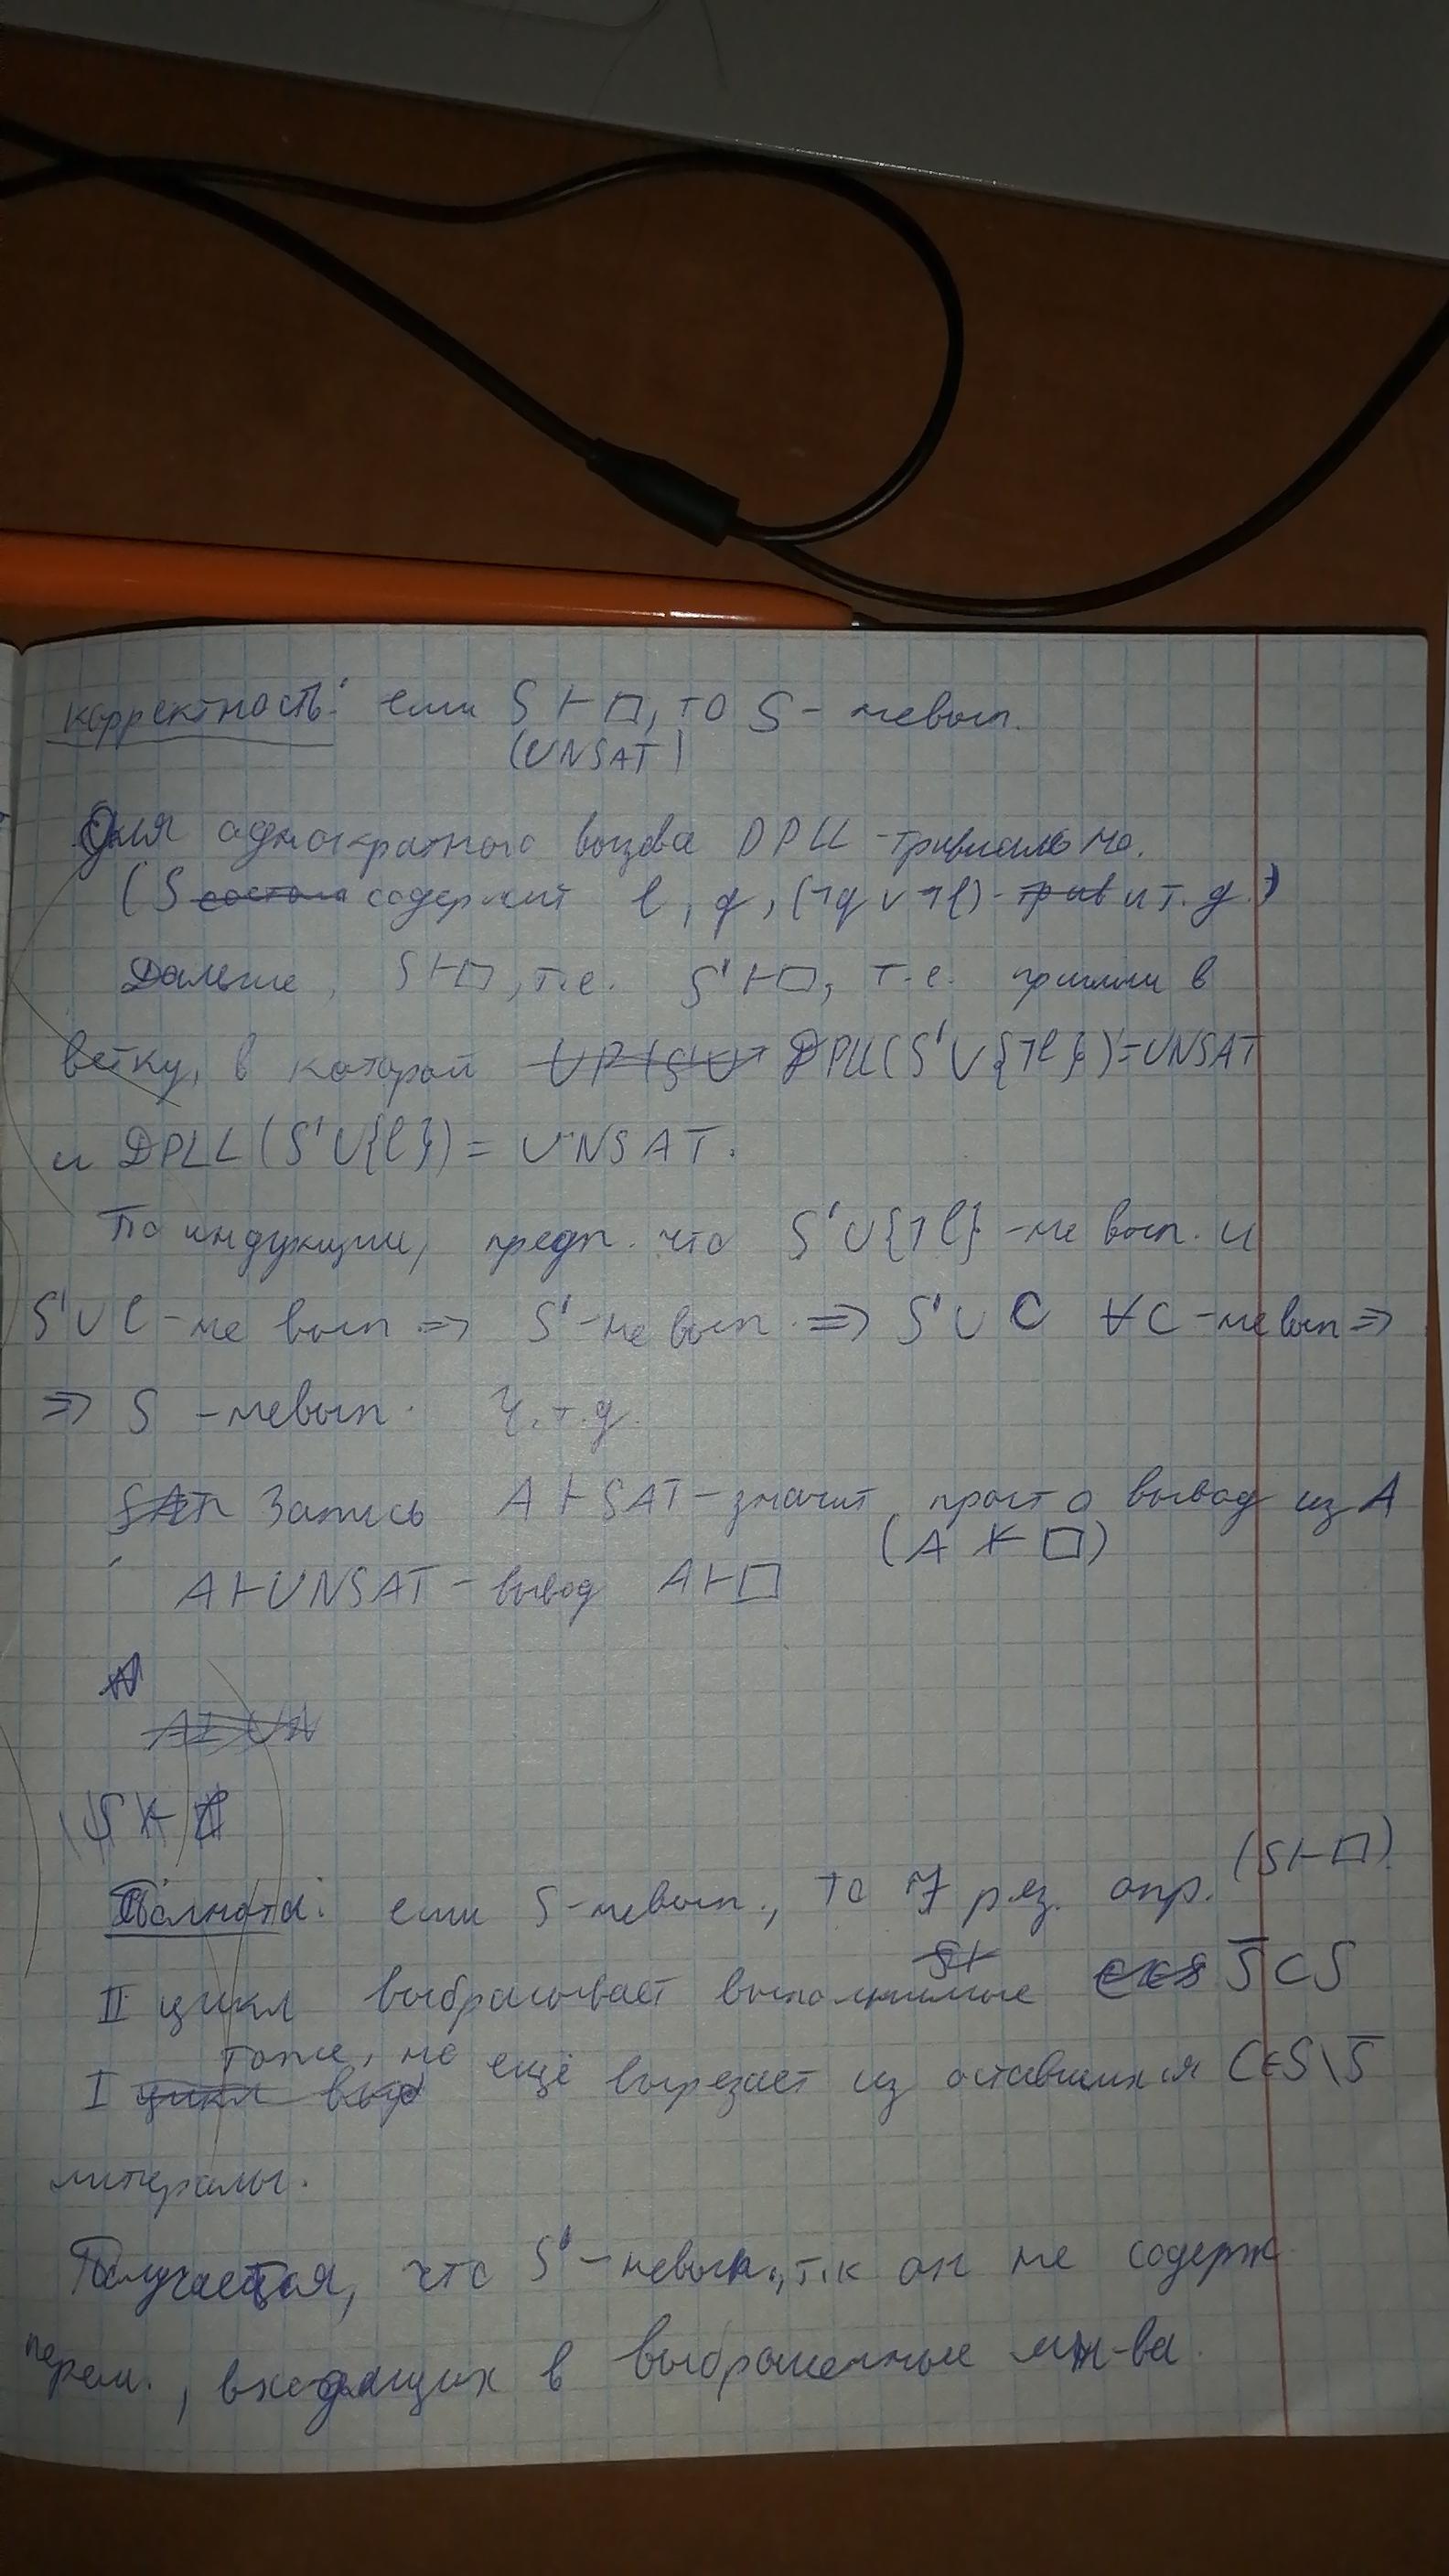 корректность: если S ⊢ □, то S - невып.
(UNSAT)
Для однократного вызова DPLL - тривиально.
(S содержит l, q, (¬q ∨ ¬l) - и т. д.)
Дальше, S ⊢ □, т.е. S' ⊢ □, т.е. пришли в
ветку, в которой DPLL(S' ∪ {¬l}) = UNSAT
и DPLL(S' ∪ {l}) = UNSAT.
По индукции, предп. что S' ∪ {¬l} - не вып. и
S' ∪ l - не вып ⇒ S' - не вып. ⇒ S' ∪ C ∀C - не вып ⇒
⇒ S - невып. Ч.т.д.
Запись A ⊢ SAT - значит просто вывод из A
(A ⊬ □)
A ⊢ UNSAT - вывод A ⊢ □
Полнота: если S - невып., то ∃ рез. опр. (S ⊢ □).
II цикл выбрасывает выполнимые S̅ ⊂ S
I тоже, но ещё вырезает из оставшихся C ∈ S \ S̅
литералы.
Получается, что S' - невып., т.к он не содерж
перем., входящих в выброшенные мн-ва.